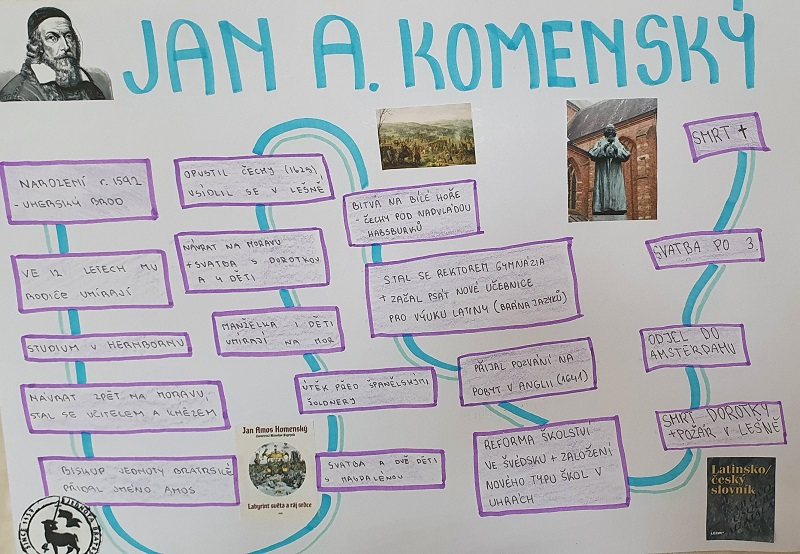 JAN A. KOMENSKÝ
NAROZENÍ r. 1592
- UHERSKÝ BROD
VE 12 LETECH MU
RODIČE UMÍRAJÍ
STUDIUM V HERNBORNU
NÁVRAT ZPĚT NA MORAVU,
STAL SE UČITELEM A KNĚZEM
BISKUP JEDNOTY BRATRSKÉ
PŘIDAL JMÉNO AMOS
SVATBA A DVĚ DĚTI
S MAGDALENOU
ÚTĚK PŘED ŠPANĚLSKÝMI
ŽOLDNÉRY
MANŽELKA I DĚTI
UMÍRAJÍ NA MOR
NÁVRAT NA MORAVU
+ SVATBA S DOROTKOU
A 4 DĚTI
OPUSTIL ČECHY (1628)
USÍDLIL SE V LEŠNĚ
BITVA NA BÍLÉ HOŘE
- ČECHY POD NADVLÁDOU
HABSBURKŮ
STAL SE REKTOREM GYMNÁZIA
+ ZAČAL PSÁT NOVÉ UČEBNICE
PRO VÝUKU LATINY (BRÁNA JAZYKŮ)
PŘIJAL POZVÁNÍ NA
POBYT V ANGLII (1641)
REFORMA ŠKOLSTVÍ
VE ŠVÉDSKU + ZALOŽENÍ
NOVÉHO TYPU ŠKOL V
UHRÁCH
SMRT DOROTKY
+ POŽÁR V LEŠNĚ
ODJEL DO
AMSTERDAMU
SVATBA PO 3.
SMRT †
Jan Amos Komenský
Labyrint světa a ráj srdce
Latinsko/
český
slovník